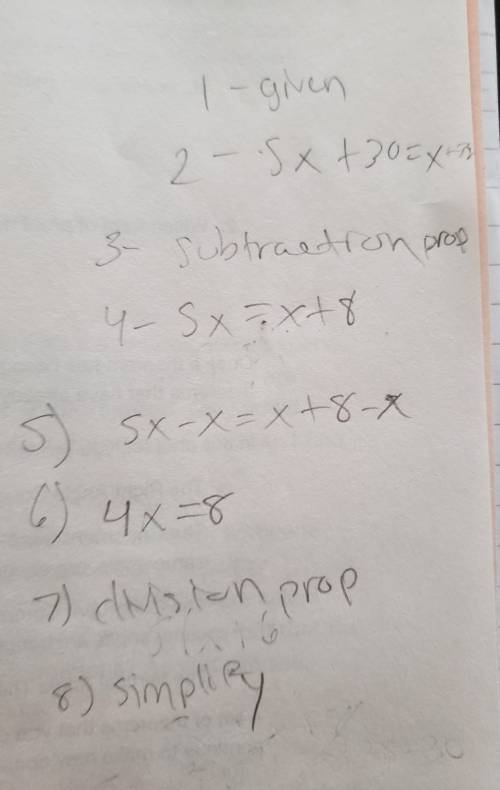 1 - given
2 - 5x + 30 = x +
3 - subtraction prop
4 - 5x = x + 8
5) 5x - x = x + 8 - x
6) 4x = 8
7) division prop
8) simplify